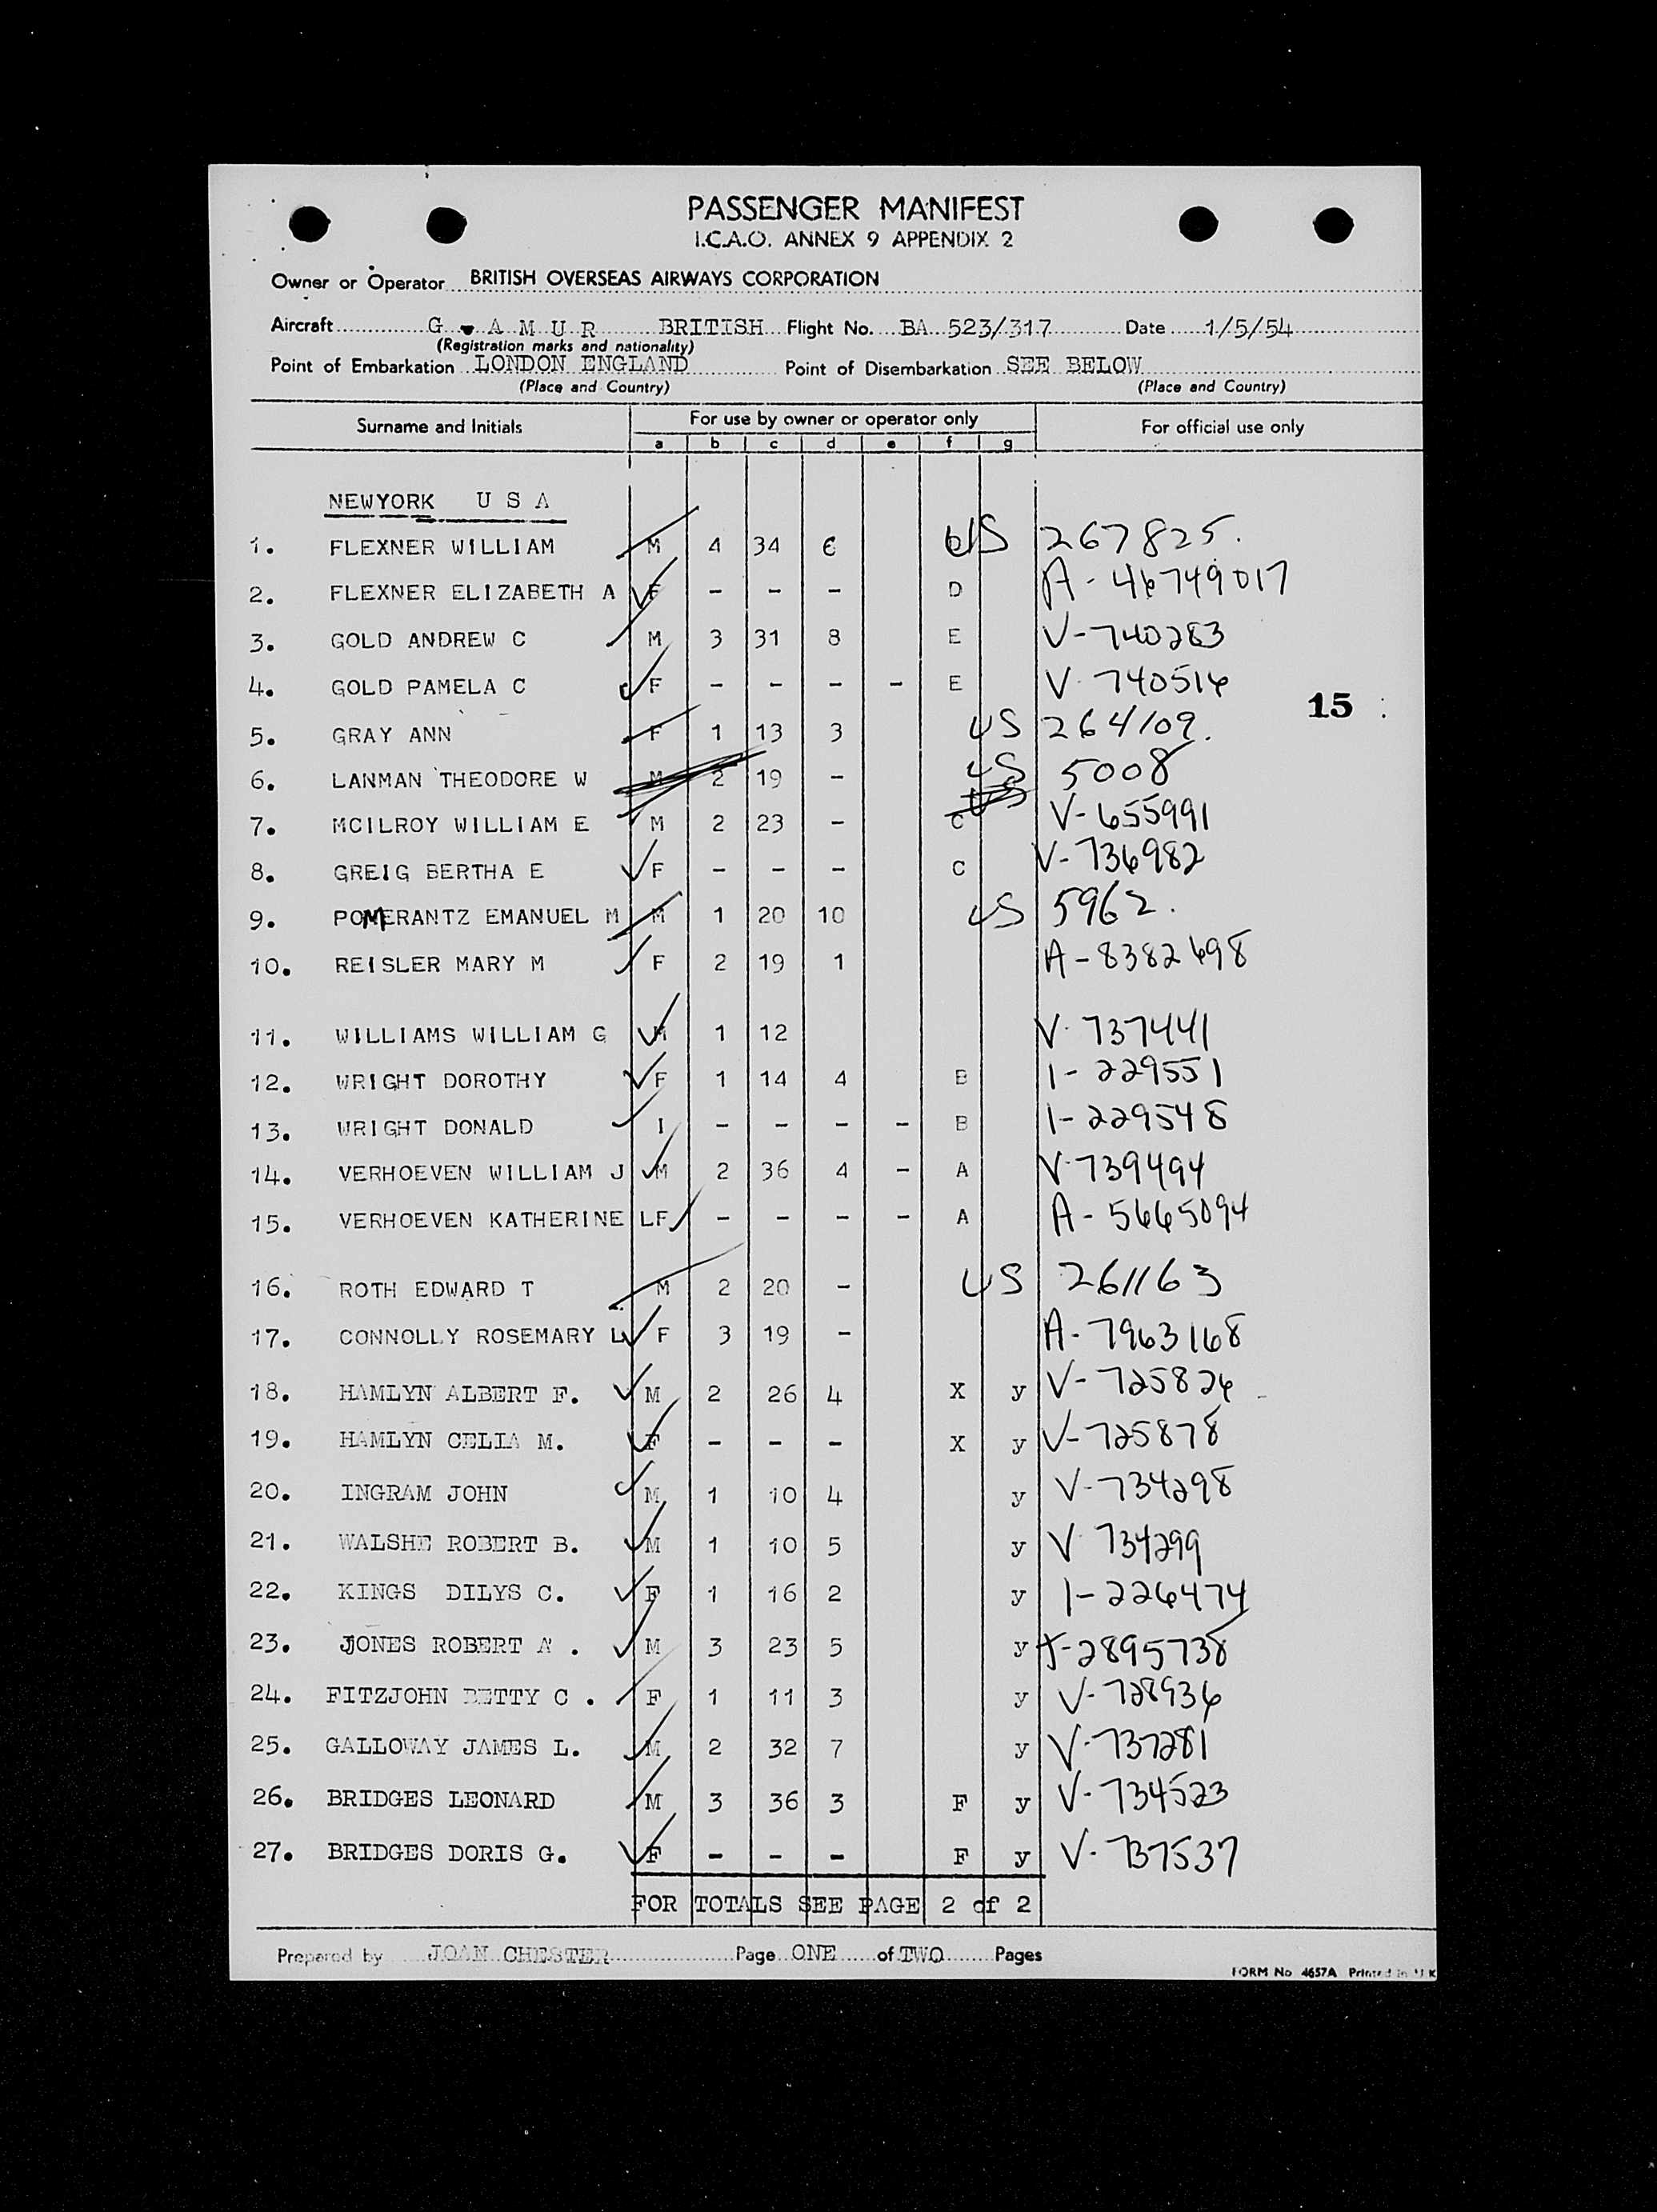 PASSENGER MANIFEST
I.C.A.O. ANNEX 9 APPENDIX 2
Owner or Operator BRITISH OVERSEAS AIRWAYS CORPORATION
Aircraft G - A M U R BRITISH Flight No. BA 523/317 Date 1/5/54
(Registration marks and nationality)
Point of Embarkation LONDON ENGLAND Point of Disembarkation SEE BELOW
(Place and Country) (Place and Country)
Surname and Initials For use by owner or operator only For official use only
a b c d e f g
NEWYORK U S A
1. FLEXNER WILLIAM M 4 34 6 D US 267825.
2. FLEXNER ELIZABETH A F - - - D A-46749017
3. GOLD ANDREW C M 3 31 8 E V-740283
4. GOLD PAMELA C F - - - - E V-740516
15
5. GRAY ANN F 1 13 3 US 264109.
6. LANMAN THEODORE W M 2 19 - US 5008
US
7. MCILROY WILLIAM E M 2 23 - C V-655991
8. GREIG BERTHA E F - - - C V-736982
9. POMERANTZ EMANUEL M M 1 20 10 US 5962.
10. REISLER MARY M F 2 19 1 A-8382698
11. WILLIAMS WILLIAM G M 1 12 V-737441
12. WRIGHT DOROTHY F 1 14 4 B 1-229551
13. WRIGHT DONALD I - - - - B 1-229548
14. VERHOEVEN WILLIAM J M 2 36 4 - A V-739494
15. VERHOEVEN KATHERINE LF - - - - A A-5665094
16. ROTH EDWARD T M 2 20 - US 261163
17. CONNOLLY ROSEMARY L F 3 19 - A-7963168
18. HAMLYN ALBERT F. M 2 26 4 X y V-725826
19. HAMLYN CELIA M. F - - - X y V-725878
20. INGRAM JOHN M 1 10 4 y V-734298
21. WALSHE ROBERT B. M 1 10 5 y V 734299
22. KINGS DILYS C. F 1 16 2 y 1-226474
23. JONES ROBERT A . M 3 23 5 y -2895738
24. FITZJOHN BETTY C . F 1 11 3 y V-728936
25. GALLOWAY JAMES L. M 2 32 7 y V-737281
26. BRIDGES LEONARD M 3 36 3 F y V-734523
27. BRIDGES DORIS G. F - - - F y V-737537
FOR TOTALS SEE PAGE 2 of 2
Prepared by JOAN CHESTER Page ONE of TWO Pages
FORM No 4657A Printed in U K